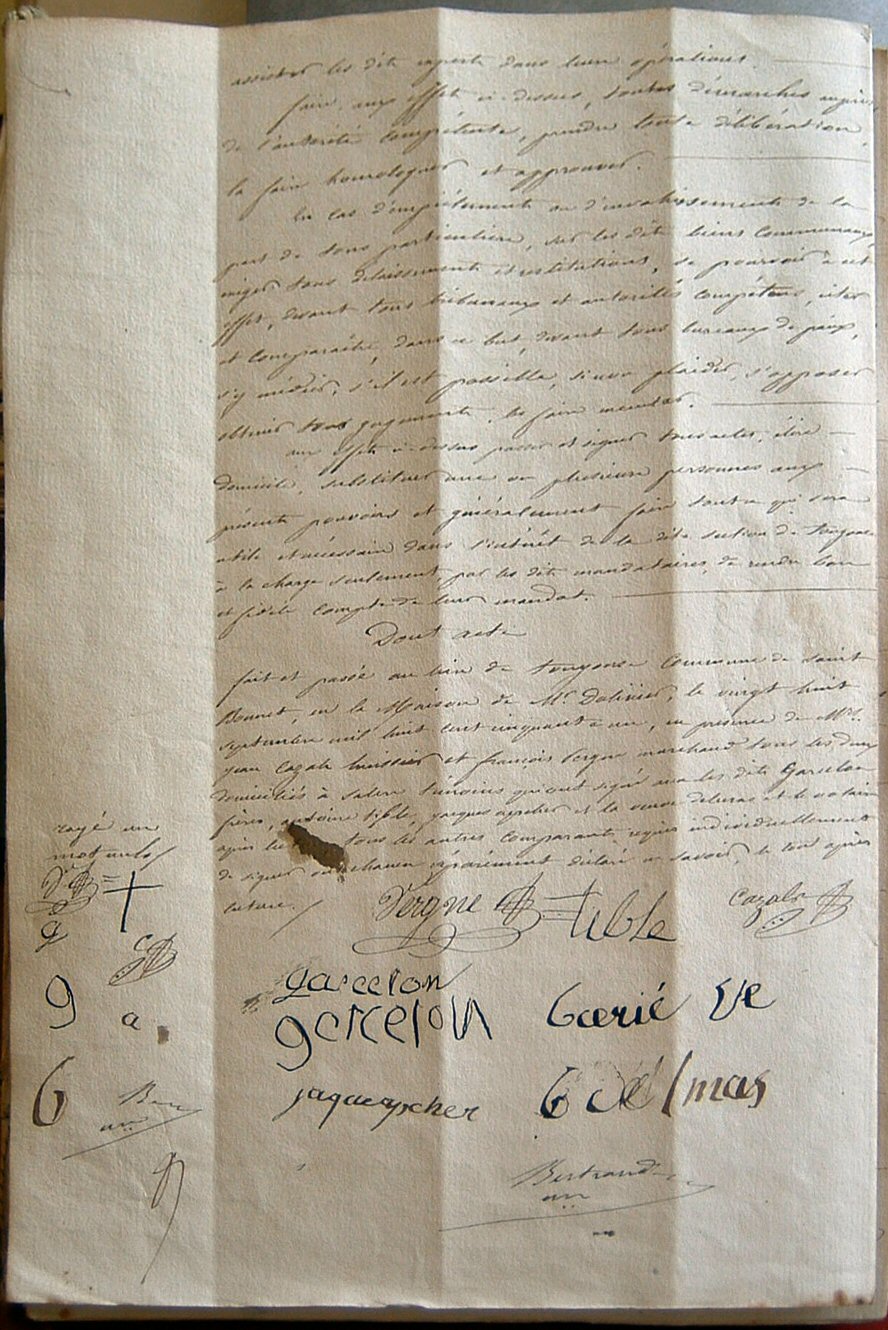 assister les dits experts dans leurs opérations.
faire, aux effets ci-dessus, toutes démarches auprès
de l'autorité compétente, prendre toute délibération,
la faire homologuer et approuver.
En cas d'empiétements ou d'envahissements de la
part de tous particuliers, sur les dits biens communaux,
exiger tous délaissements et restitutions, se pourvoir à cet
effet, devant tous tribunaux et autorités compétens, citer
et comparaître, dans ce but, devant tous bureaux de paix,
s'y concilier, s'il est possible, sinon plaider, s'opposer
obtenir tous jugements, les faire exécuter.
aux effets ci-dessus passer et signer tous actes, élire
domicile, substituer une ou plusieurs personnes aux
présents pouvoirs et généralement faire tout ce qui sera
utile et nécessaire dans l'intérêt de la dite section de
à la charge seulement, par les dits mandataires, de rendre bon
et fidèle compte de leur mandat.
Dont acte
fait et passé au lieu de commune de Saint
Bonnet, en la Maison de Mr le vingt huit
septembre mil huit cent cinquante un, en présence de Mrs.
jean Cazals huissier et françois Vergne marchand tous les deux
domiciliés à salers témoins qui ont signé avec les dits Garcelon
frères, antoine tible, jacques apcher et la veuve delmas et le notaire
après lecture
de signer ont chacun séparément déclaré ne savoir, le tout après
lecture.
rayé un
mot nul
Vergne tible Cazals
garcelon
garcelon Garié Ve
jaqueapcher G delmas
g
g a
G
Bertrand